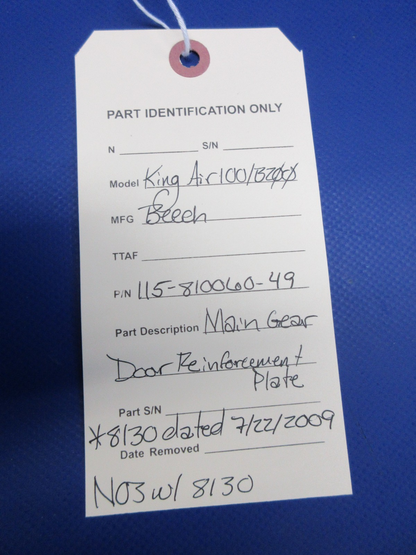 PART IDENTIFICATION ONLY
N S/N
Model King Air 100/B200
MFG Beech
TTAF
P/N 115-810060-49
Part Description Main Gear
Door Reinforcement
Plate
Part S/N
*8130 dated 7/22/2009
Date Removed
NOS w/ 8130